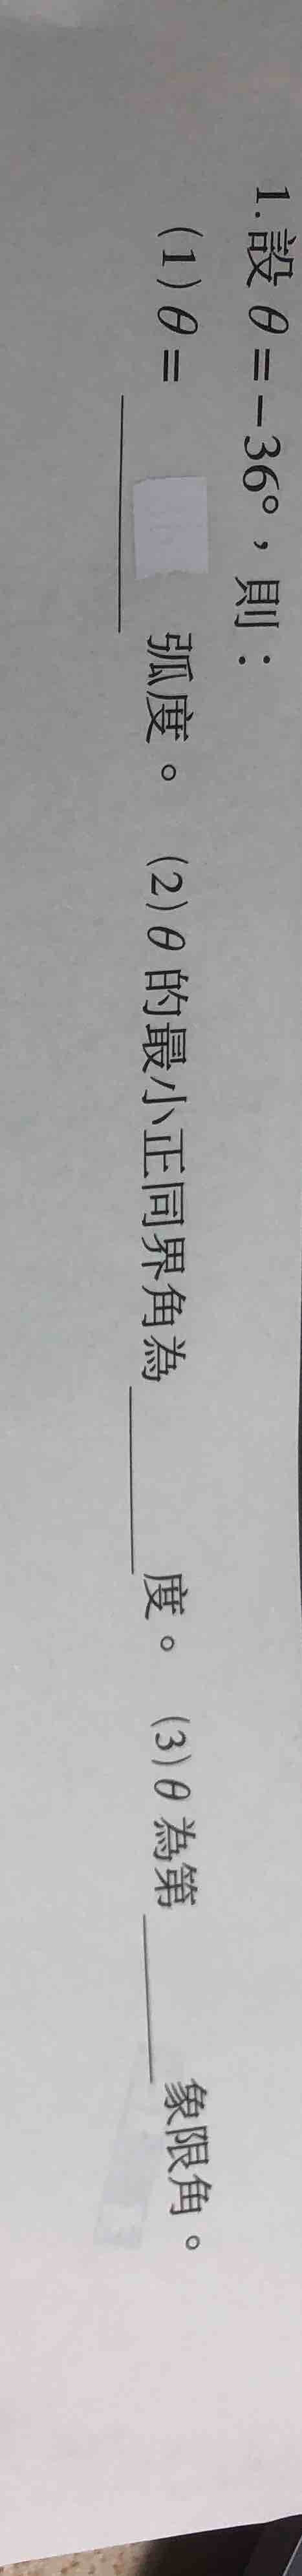 1. 設 θ = −36°，則：
(1) θ = ＿＿＿＿ 弧度。 (2) θ 的最小正同界角為 ＿＿＿＿ 度。 (3) θ 為第 ＿＿＿＿ 象限角。